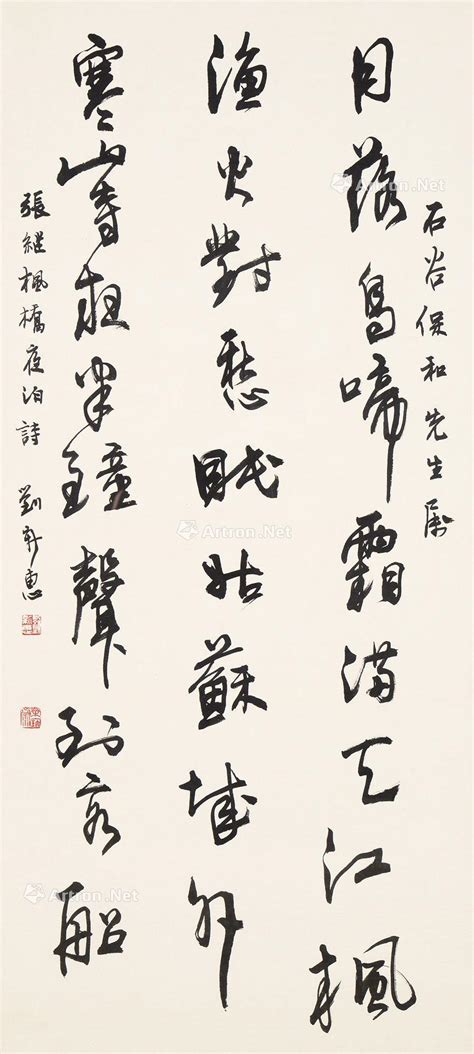 石谷保和先生属
月落烏啼霜滿天江楓
漁火對愁眠姑蘇城外
寒山寺夜半鐘聲到客船
張繼楓橋夜泊詩 劉惠
Artron.Net
Artron.Net
Artron.Net
Artron.Net